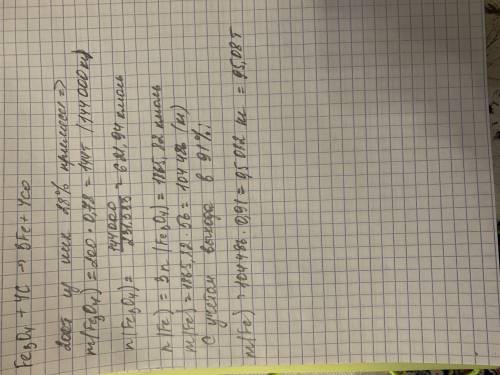 Fe3O4 + 4C → 3Fe + 4CO
200т из них 28% примеси =>
m(Fe3O4) = 200 · 0,78 = 144т (144 000 кг)
n(Fe3O4) = 144000 / 231,533 = 621,94 кмоль
n(Fe) = 3n(Fe3O4) = 1865,82 кмоль
m(Fe) = 1865,82 · 56 = 104 486 (кг)
С учетом выхода в 91%:
m(Fe) = 104486 · 0,91 = 95 082 кг = 95,08т